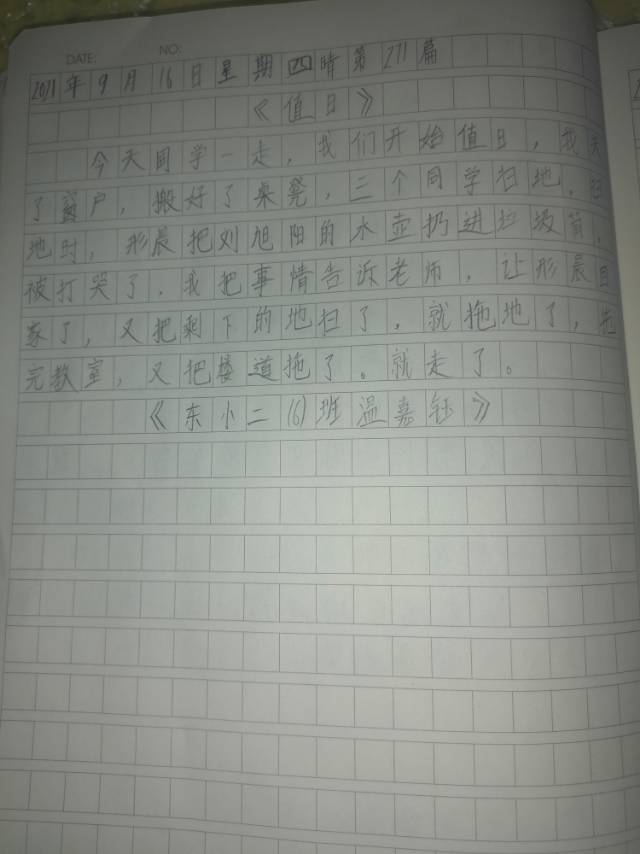 DATE: NO:
2021年9月16日星期四晴第271篇
《值日》
今天同学一走，我们开始值日，我关
了窗户，搬好了桌凳，三个同学扫地，扫
地时，形晨把刘旭阳的水壶扔进垃圾筒，
被打哭了，我把事情告诉老师，让形晨回
家了，又把剩下的地扫了，就拖地了，拖
完教室，又把楼道拖了。就走了。
《东小二(6)班温嘉钰》